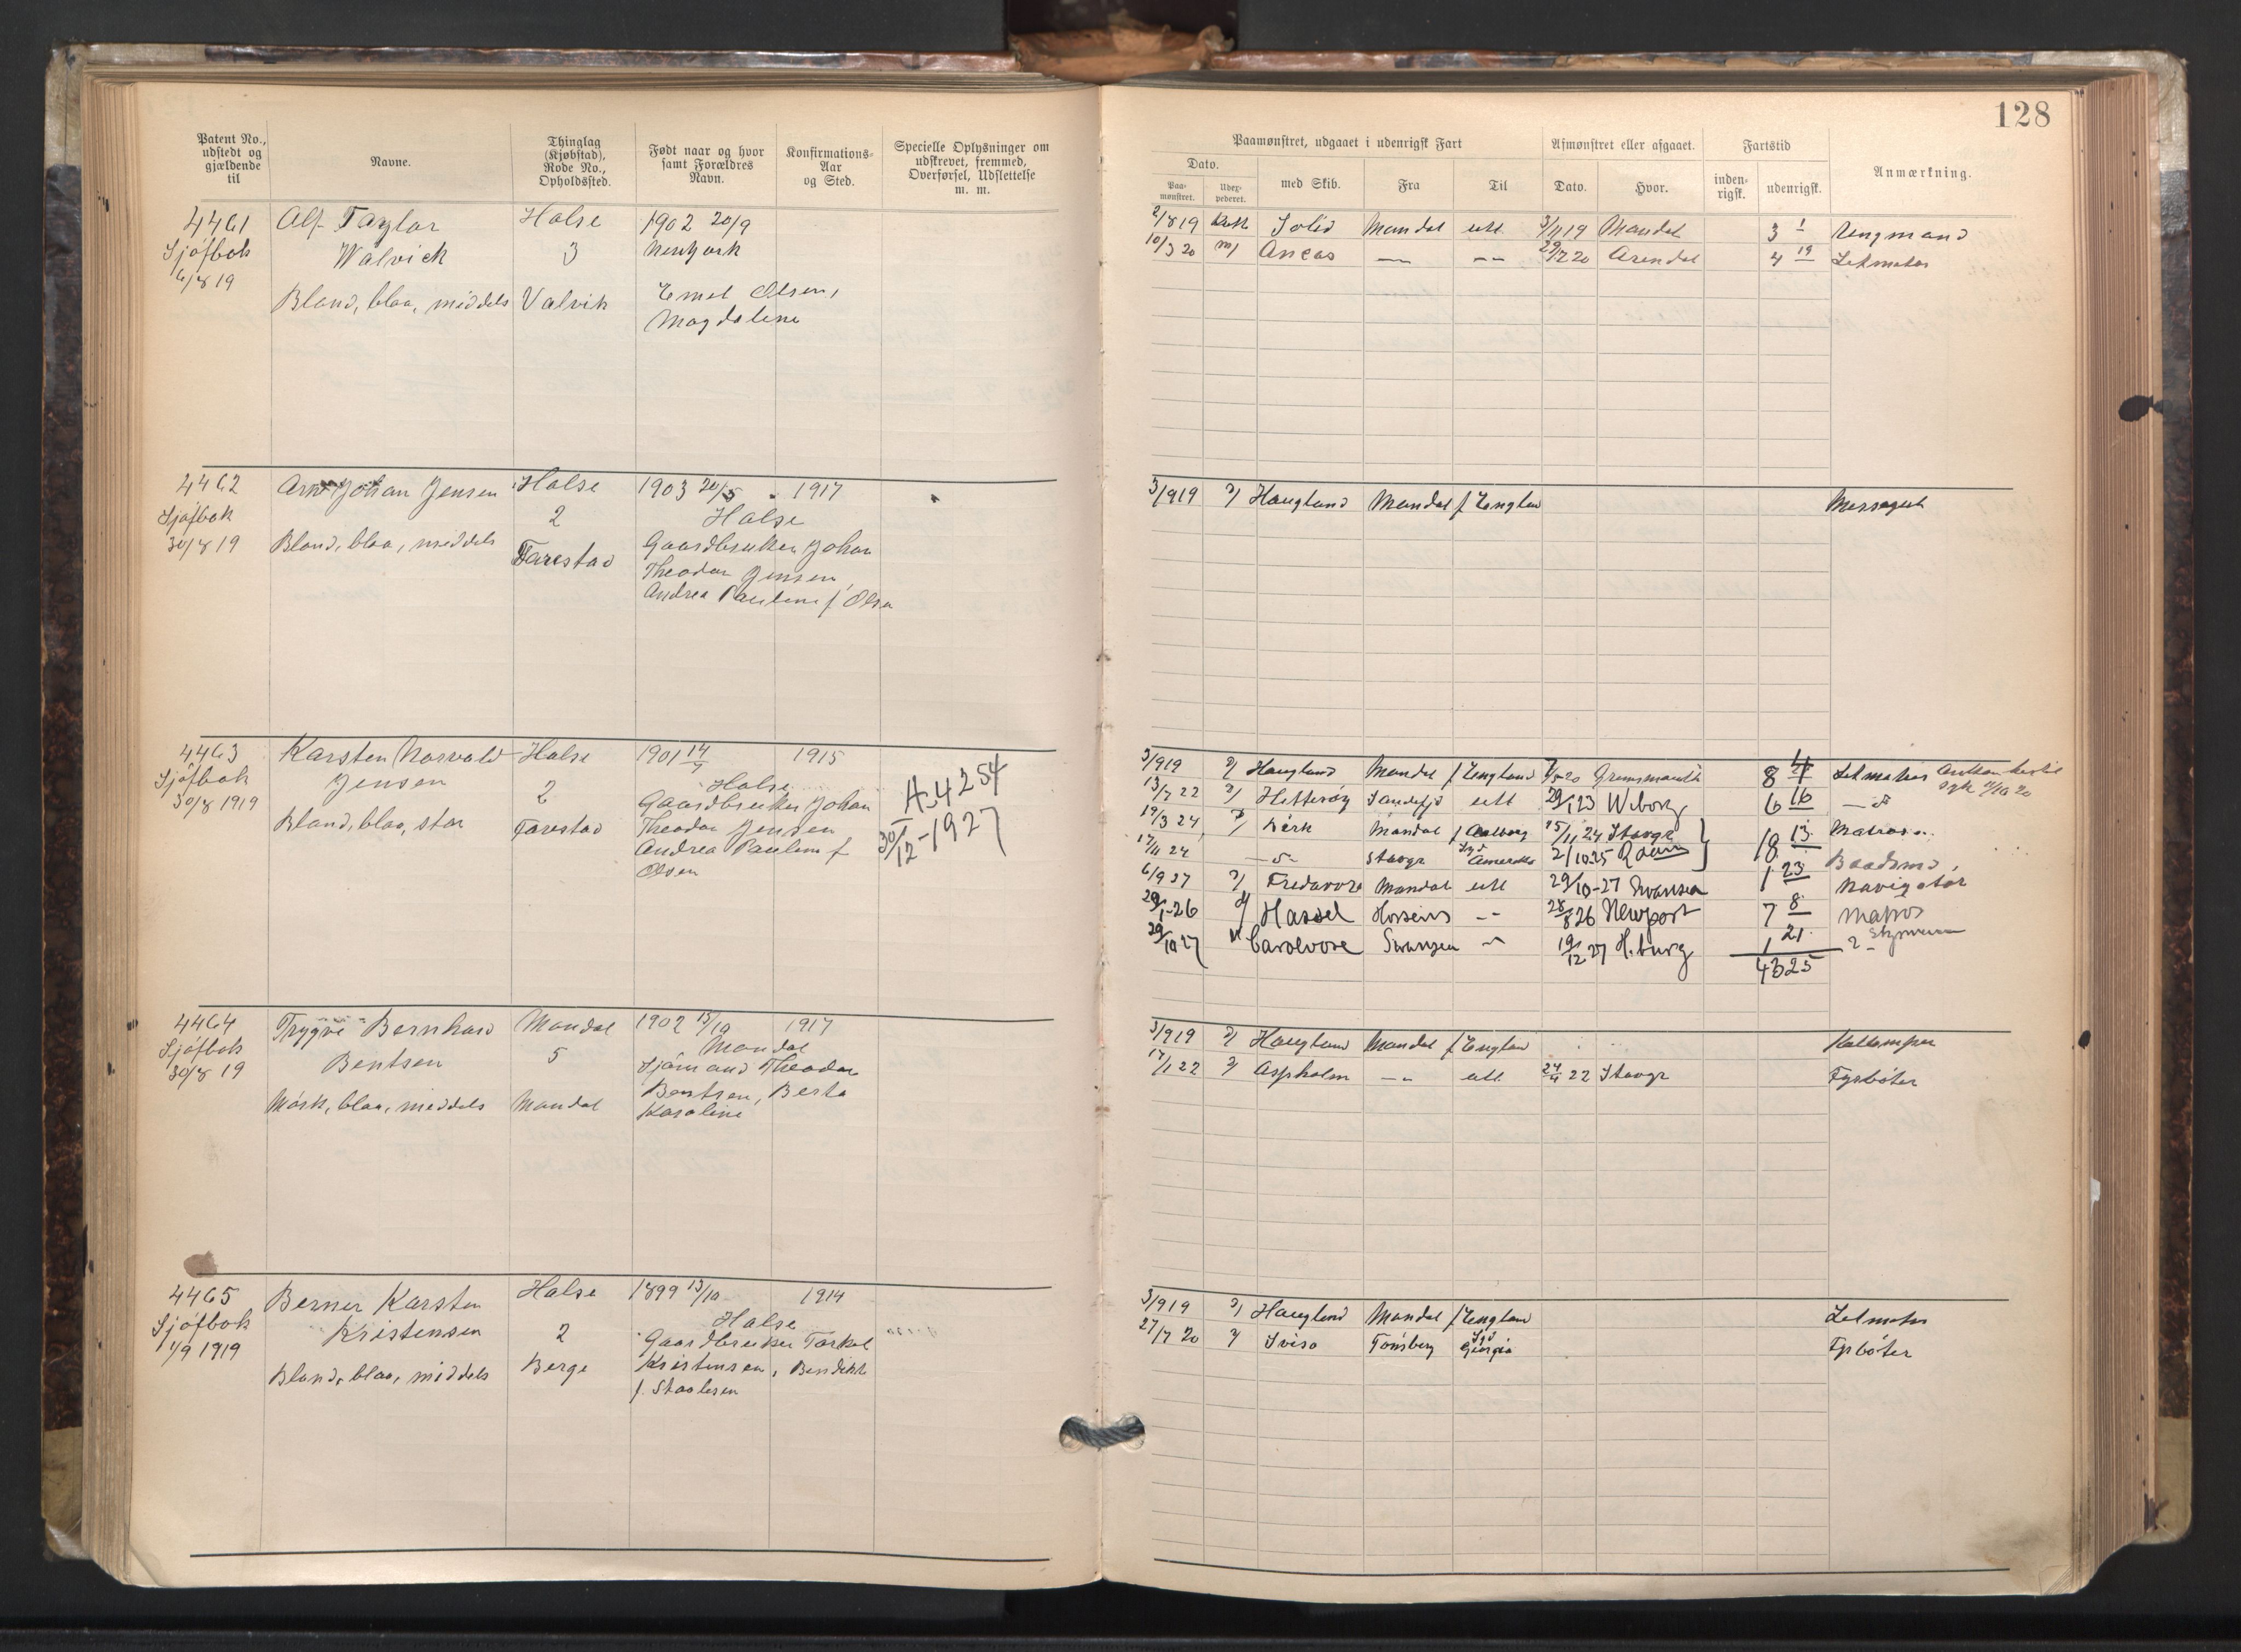 128
Patent No., udstedt og gjældende til
Navne.
Thinglag (Kjøbstad), Rode No., Opholdssted.
Født naar og hvor samt Forældres Navn.
Konfirmations-Aar og Sted.
Specielle Oplysninger om udskrevet, fremmed, Overførsel, Udslettelse m. m.
Paamønstret, udgaaet i udenrigsk Fart
Dato.
Paa-mønstret.
Udex-pederet.
med Skib.
Fra
Til
Afmønstret eller afgaaet.
Dato.
Hvor.
Fartstid
inden-rigsk.
udenrigsk.
Anmærkning.
4461 Alf Taylor Halse 1902 20/9
Sjøfbok Walvick 3 Newyork
6/8 19
Blond, blaa, middels Valvik Emil Olsen,
Magdalene
2/8 19 Solid Mandal utl 3/11 19 Mandal 3 1 Ungmand
10/3 20 Aneas — — 29/7 20 Arendal 4 19 Letmatros
4462 Arne Johan Jensen Halse 1903 20/5 1917
Sjøfbok 2 Halse
30/8 19 Blond, blaa, middels Farestad Gaardbruker Johan
Theodor Jensen,
Andrea Pauline f Olsen
3/9 19 Haugland Mandal f Englan Messegut
4463 Karsten Norvald Halse 1901 14/7 1915
Sjøfbok Jensen 2 Halse
30/8 1919 Gaardbruker Johan
Blond, blaa, stor Farestad Theodor Jensen
Andrea Pauline f
Olsen
A-4254
30/12-1927
3/9 19 Haugland Mandal f England Grimsmouth 8 4 Letmatros
13/7 22 Hitterøy Sandefj utl 29/1 23 Wiborg 6 16 — d
19/3 24 Mandal f Aalborg 15/11 24 Stavgr 18 13 Matros
17/11 24 — Stavgr Syd Amerika 2/10 25 Baadsmd
6/9 27 Fredavore Mandal utl 29/10-27 Swansea 1 23 Navigatør
29/1-26 Hassel Horsens — 28/8 26 Newport 7 8 Matros
29/10 27 Carolvore Swansea — 19/12 27 H.burg 1 21 2 Styrmann
43 25
4464 Trygve Bernhard Mandal 1902 15/10 1917
Sjøfbok Bentsen 5 Mandal
30/8 19 Sjømand Theodor
Mørk, blaa, middels Mandal Bentsen, Berta
Karoline
3/9 19 Haugland Mandal f Englan Kullemper
17/1 22 Aspholm — utl 24/4 22 Stavgr Fyrbøter
4465 Berner Karsten Halse 1899 13/10 1914
Sjøfbok Kristensen 2 Halse
1/9 1919 Gaardbruker Torkel
Blond, blaa, middels Berge Kristensen, Bendikte
f. Staalesen
3/9 19 Haugland Mandal f Englan Letmatros
27/7 20 Sviso Tønsberg Syd Georgia Fyrbøter